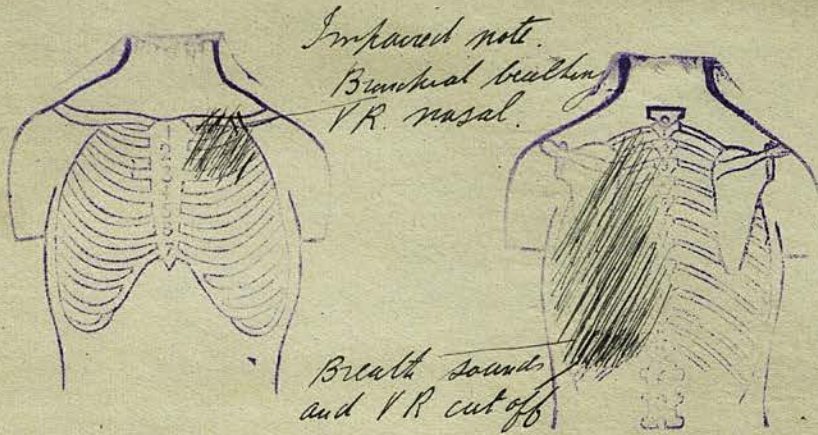 Impaired note.
Bronchial breathing
VR. nasal.
Breath sounds
and VR cut off